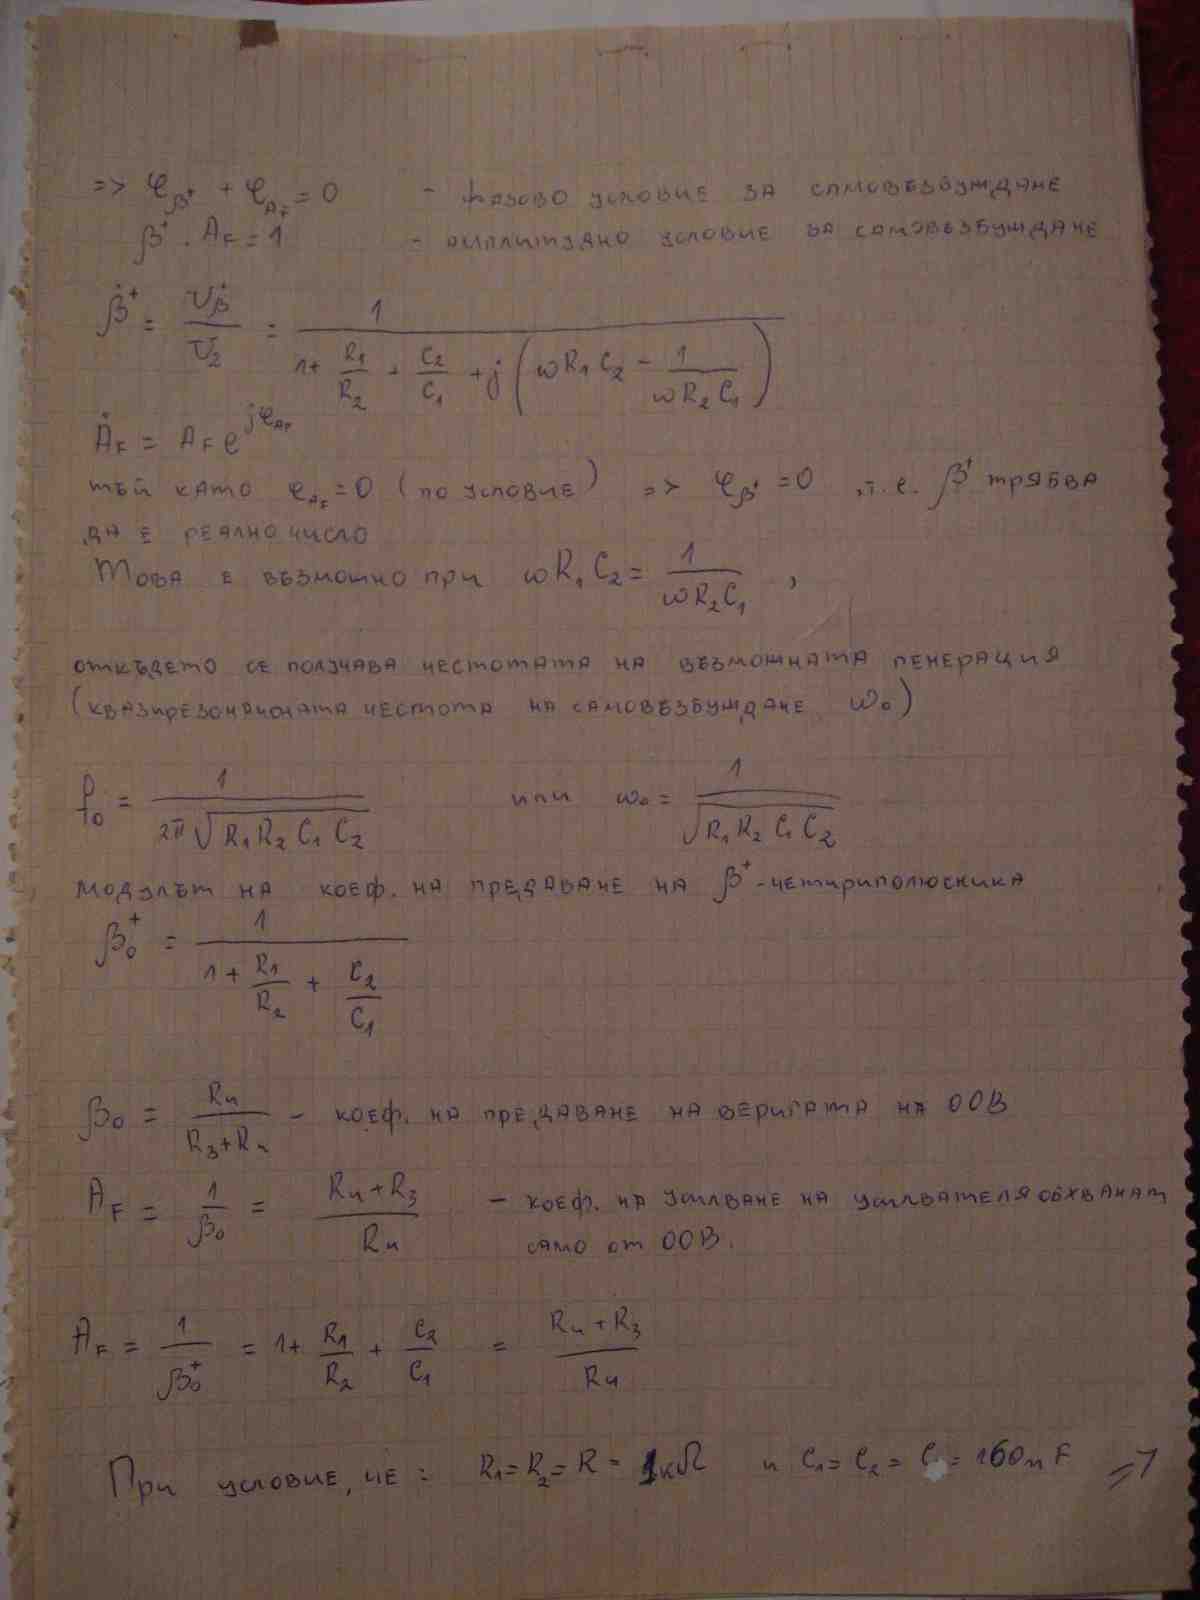 => φβ⁺ + φAF = 0 - фазово условие за самовъзбуждане
β⁺ . AF = 1 - амплитудно условие за самовъзбуждане
β̇⁺ = Uβ̇ / U̇2 = 1 / (1 + R1/R2 + C2/C1 + j(ωR1C2 - 1/(ωR2C1)))
ȦF = AF e^jφAF
тъй като φAF = 0 (по условие) => φβ⁺ = 0 , т.е. β⁺ трябва
да е реално число
Това е възможно при ωR1C2 = 1/(ωR2C1) ,
откъдето се получава честотата на възможната генерация
(квазирезонансната честота на самовъзбуждане ω0)
f0 = 1/(2π√(R1R2C1C2)) или ω0 = 1/√(R1R2C1C2)
модулът на коеф. на предаване на β⁺-четириполюсника
β0⁺ = 1/(1 + R1/R2 + C2/C1)
β0 = R4/(R3+R4) - коеф. на предаване на веригата на ООВ
AF = 1/β0 = (R4+R3)/R4 - коеф. на усилване на усилвателя обхванат
само от ООВ.
AF = 1/β0⁺ = 1 + R1/R2 + C2/C1 = (R4+R3)/R4
При условие, че : R1 = R2 = R = 1кΩ и C1 = C2 = C = 160nF =>